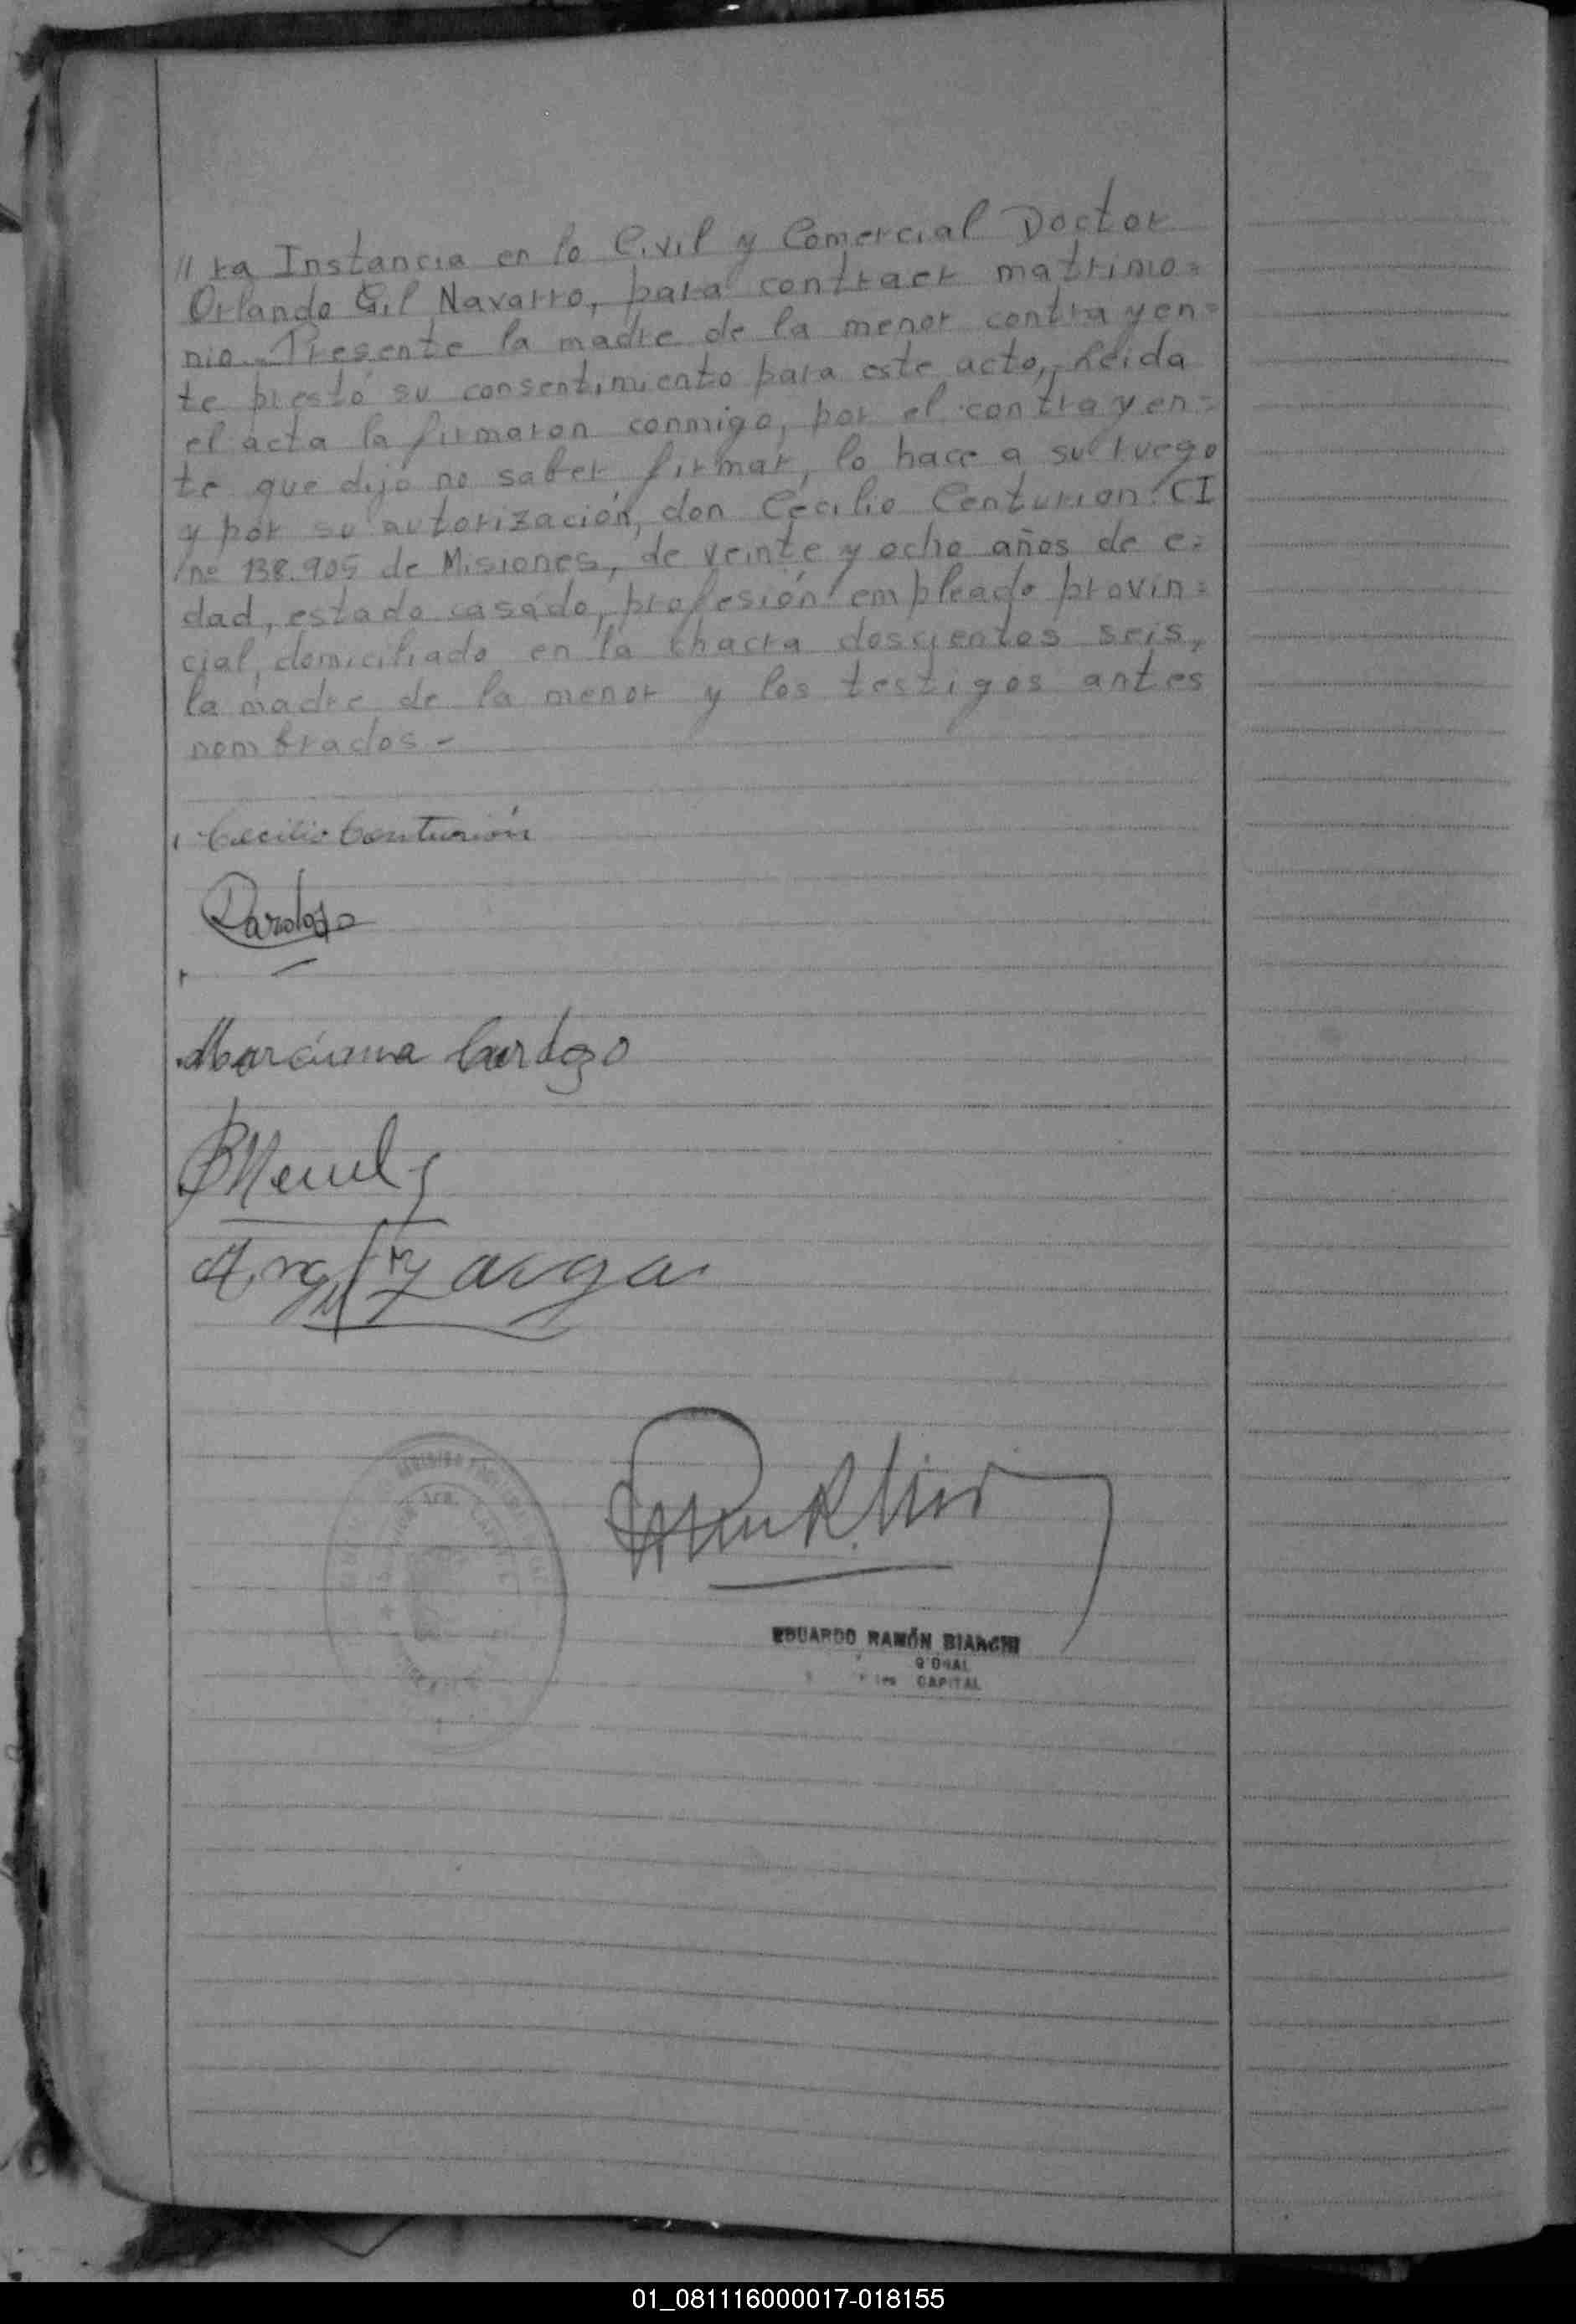 // ra Instancia en lo Civil y Comercial Doctor
Orlando Gil Navarro, para contraer matrimo=
nio.- Presente la madre de la menor contrayen=
te prestó su consentimiento para este acto,- Leida
el acta la firmaron conmigo, por el contrayen=
te que dijo no saber firmar, lo hace a su ruego
y por su autorización, don Cecilio Centurion CI
nº 138.905 de Misiones, de veinte y ocho años de e=
dad, estado casado, profesión empleado provin=
cial, domiciliado en la chacra doscientos seis,
la madre de la menor y los testigos antes
nombrados.-
Cecilio Centurión
Marciana Cardozo
EDUARDO RAMÓN BIANCHI
CAPITAL
01_081116000017-018155